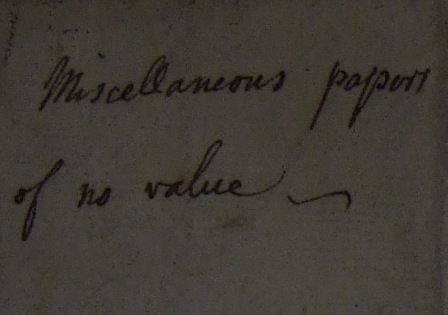 Miscellaneous papers
of no value —